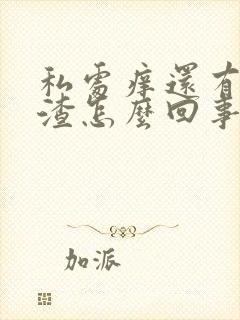 私處痒還有
渣怎麼回事
加派